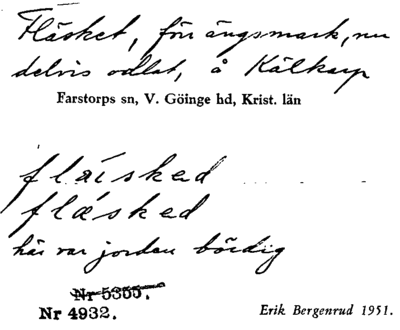 Fläsket, förr ängsmark, nu
delvis odlat, å Källkarp
Farstorps sn, V. Göinge hd, Krist. län
fläisked
flæsked
här var jorden bördig
Nr 5355.
Nr 4932.
Erik Bergenrud 1951.